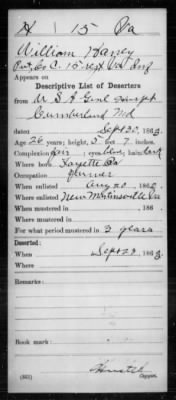 H 15 Va
William Haney
Pvt, Co. C, 15 Regt Va Inf
Appears on
Descriptive List of Deserters
from U.S.A. Genl Hospt
Cumberland Md
dated Sept 30, 1863
Age 26 years; height, 5 feet 7 inches.
Complexion fair; eyes blue; hair dark
Where born Fayette Co
Occupation Farmer
When enlisted Aug 20, 1862
Where enlisted New Martinsville Va
When mustered in , 186
Where mustered in
For what period mustered in 3 years
Deserted:
When Sept 29, 1863
Where
Remarks:
Book mark:
(861) Copyist.